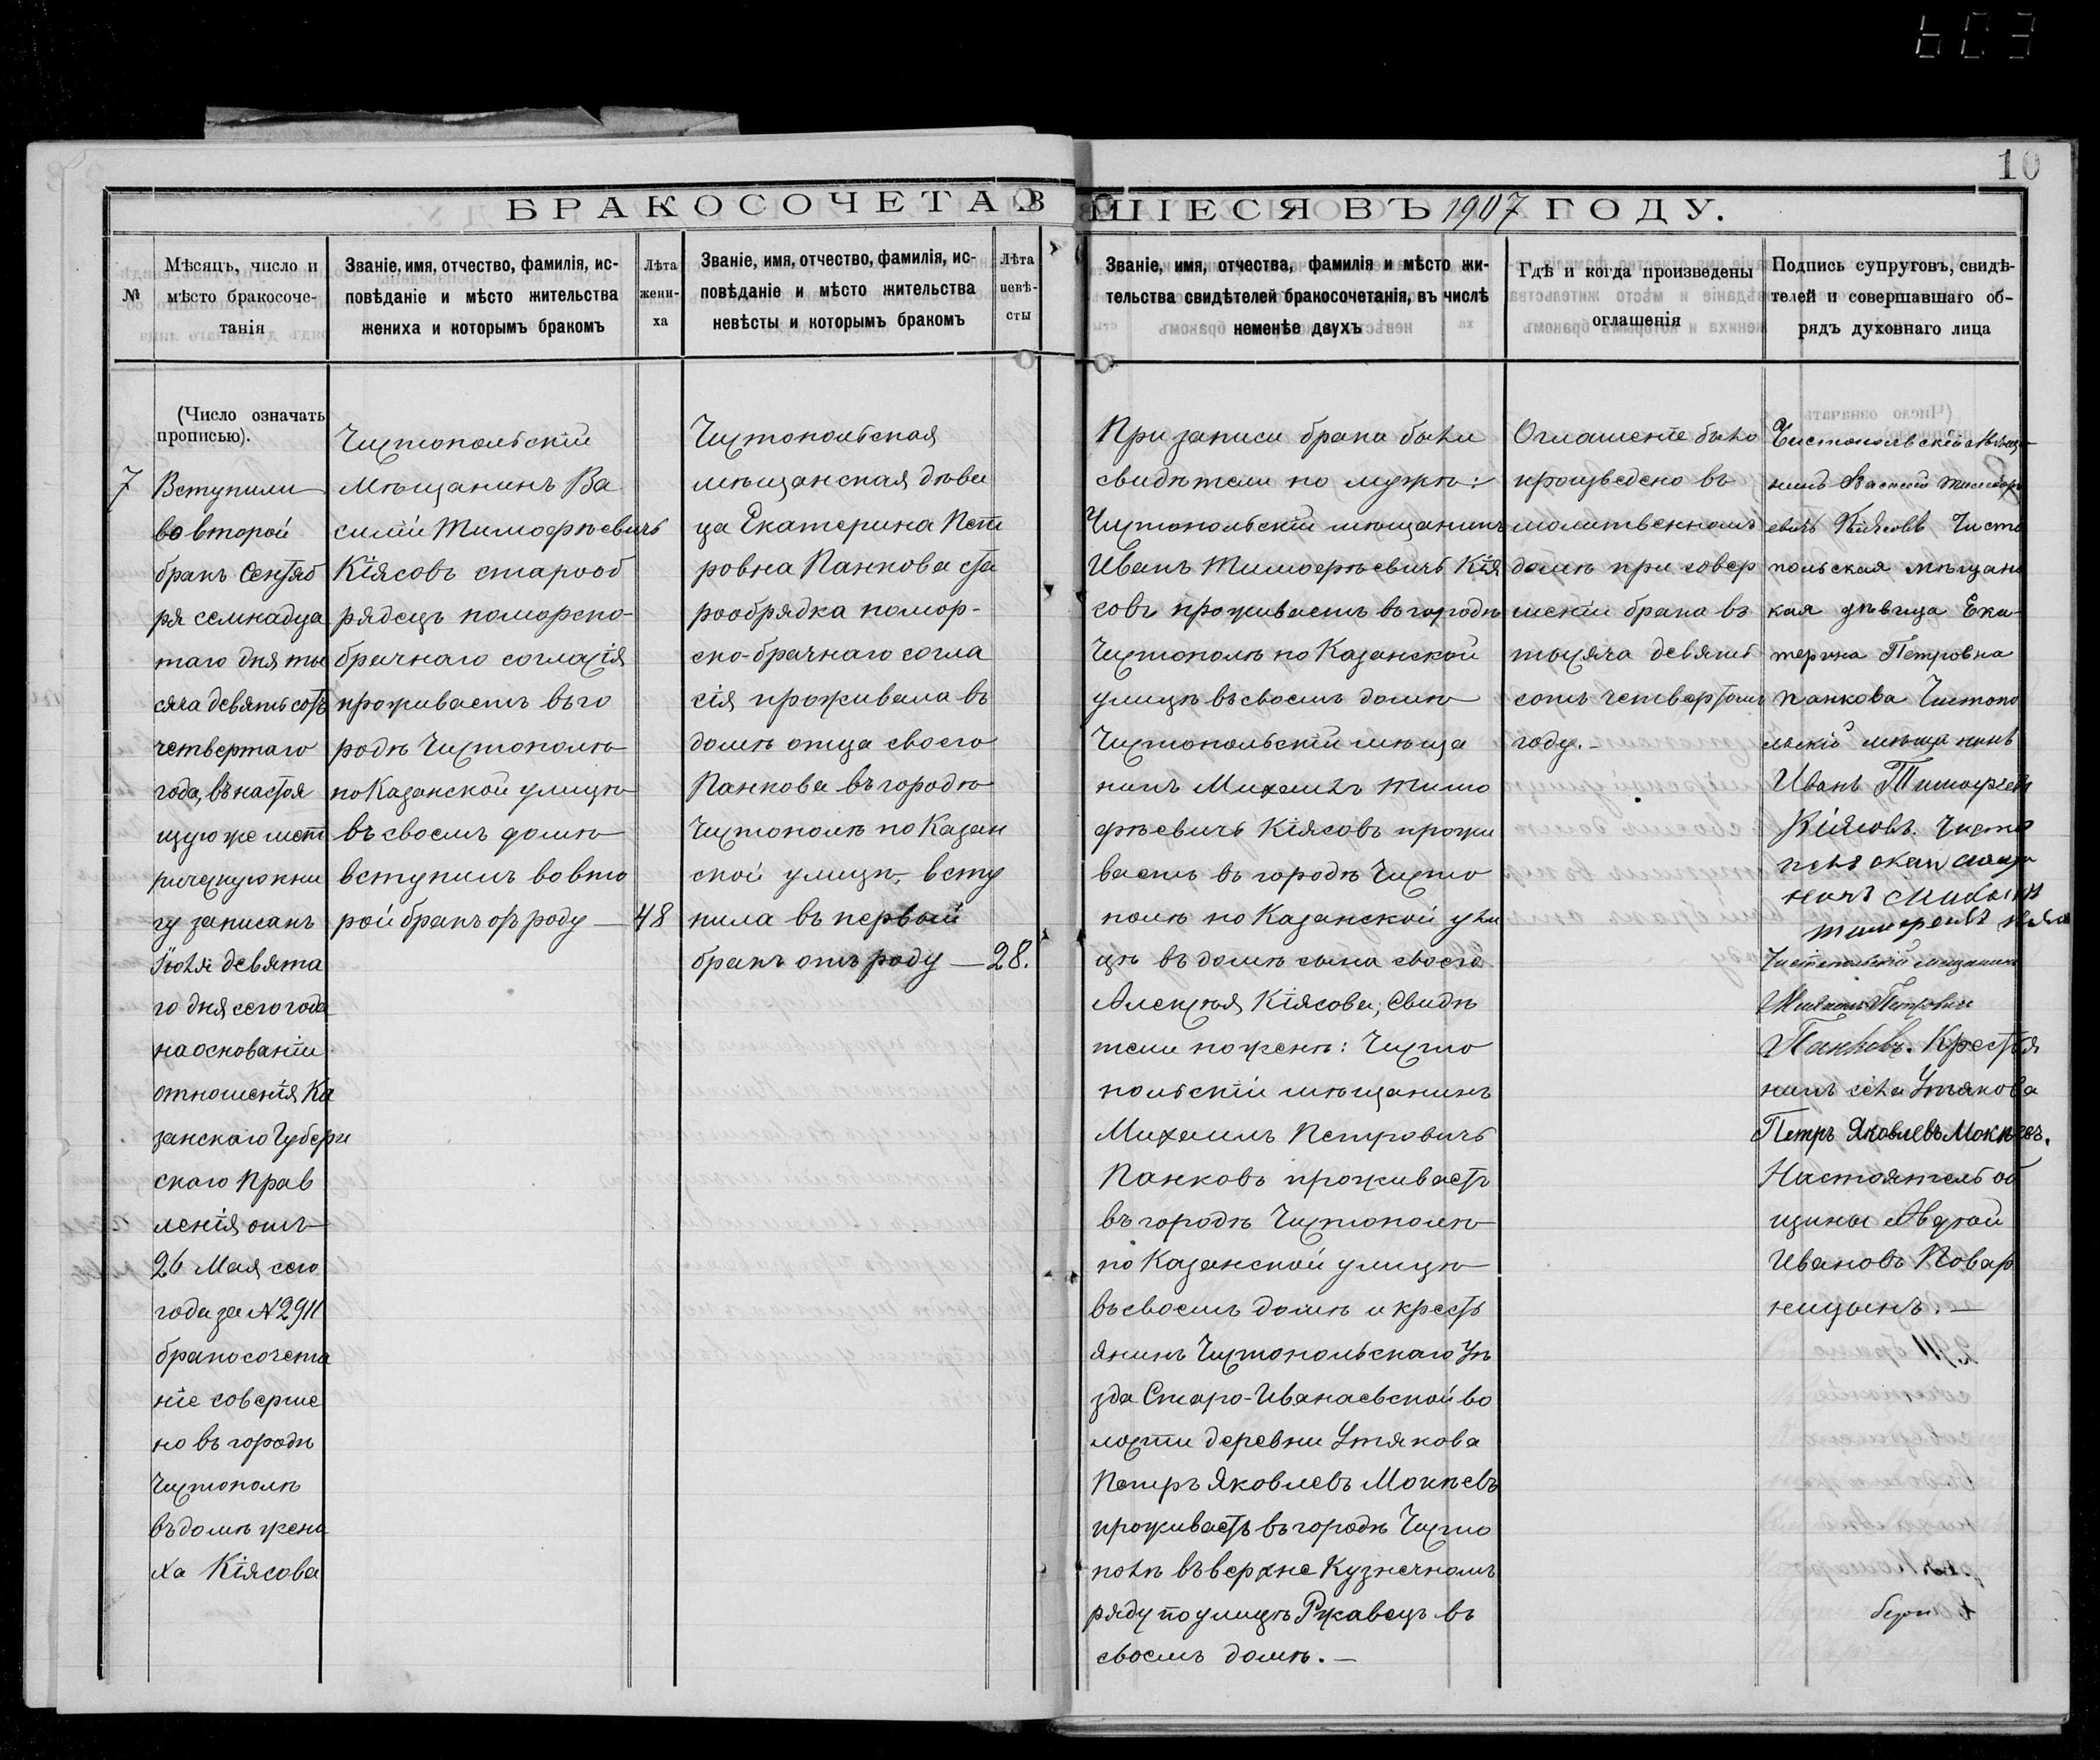 603
10
БРАКОСОЧЕТАВШІЕСЯ ВЪ 1907 ГОДУ.
№
Мѣсяцъ, число и
мѣсто бракосоче-
танія
Званіе, имя, отчество, фамилія, ис-
повѣданіе и мѣсто жительства
жениха и которымъ бракомъ
Лѣта
жени-
ха
Званіе, имя, отчество, фамилія, ис-
повѣданіе и мѣсто жительства
невѣсты и которымъ бракомъ
Лѣта
невѣ-
сты
Званіе, имя, отчества, фамилія и мѣсто жи-
тельства свидѣтелей бракосочетанія, въ числѣ
неменѣе двухъ
Гдѣ и когда произведены
оглашенія
Подпись супруговъ, свидѣ-
телей и совершавшаго об-
рядъ духовнаго лица
(Число означать
прописью).
7
Вступили
во второй
бракъ Сентяб
ря семнадца
таго дня ты
сяча девятьсотъ
четвертаго
года, въ настоя
щую же мет
рическую кни
гу записанъ
Іюля девята
го дня сего года
на основаніи
отношенія Ка
занскаго Губерн
скаго Прав
ленія отъ
26 Мая сего
года за № 2911
бракосочета
ніе соверше
но въ городѣ
Чистополѣ
въ домѣ жени
ха Кіясова
Чистопольскій
мѣщанинъ Ва
силій Тимофѣевичъ
Кіясовъ старооб
рядецъ поморско-
брачнаго согласія
проживаетъ въ го
родѣ Чистополѣ
по Казанской улицѣ
въ своемъ домѣ
вступилъ во вто
рой бракъ отъ роду —
48
Чистопольская
мѣщанская дѣви
ца Екатерина Пет
ровна Панкова ста
рообрядка помор-
ско-брачнаго согла
сія проживала въ
домѣ отца своего
Панкова въ городѣ
Чистополѣ по Казан
ской улицѣ, всту
пила въ первый
бракъ отъ роду —
28.
При записи брака были
свидѣтели по мужѣ:
Чистопольскій мѣщанинъ
Иванъ Тимофѣевичъ Кія
совъ проживаетъ въ городѣ
Чистополѣ по Казанской
улицѣ въ своемъ домѣ
Чистопольскій мѣща
нинъ Михаилъ Тимо
фѣевичъ Кіясовъ прожи
ваетъ въ городѣ Чисто
полѣ по Казанской ули
цѣ въ домѣ сына своего
Алексѣя Кіясова, Свидѣ
тели по женѣ: Чисто
польскій мѣщанинъ
Михаилъ Петровичъ
Панковъ проживаетъ
въ городѣ Чистополѣ
по Казанской улицѣ
въ своемъ домѣ и кресть
янинъ Чистопольскаго Уѣ
зда Старо-Иванаевской во
лости деревни Утякова
Петръ Яковлевъ Мокѣевъ
проживаетъ въ городѣ Чисто
полѣ въ верхне Кузнечномъ
ряду по улицѣ Ржавецъ въ
своемъ домѣ. —
Оглашеніе было
произведено въ
молитвенномъ
домѣ при совер
шеніи брака въ
тысяча девять
сотъ четвертомъ
году. -
Чистопольскій Мѣща-
нинъ Василій Тимофѣ
евичъ Кіясовъ Чисто
польская мѣщанс
кая дѣвица Ека-
терина Петровна
Панкова Чистопо
льскій мѣщанинъ
Иванъ Тимофеевъ
Кіясовъ. Чисто
Чистопольскій мѣщанинъ
Михаилъ Петровичъ
Панковъ. Крестья
нинъ села Утякова
Петръ Яковлевъ Мокѣевъ.
Настоятель об
щины Авдѣй
Ивановъ Повар
ницынъ. —